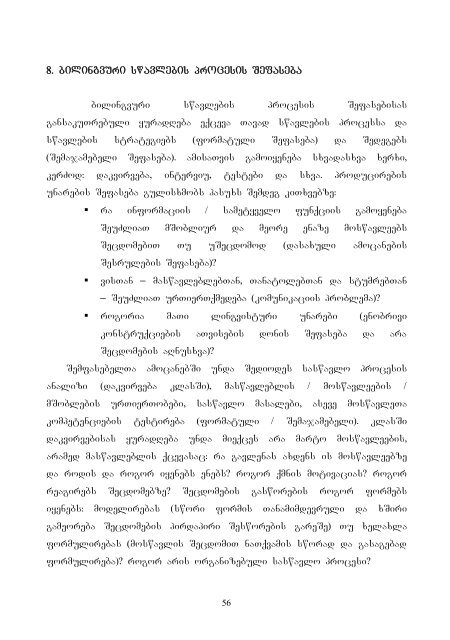 8. ბილინგვური სწავლების პროცესის შეფასება
ბილინგვური სწავლების პროცესის შეფასებისას
განსაკუთრებული ყურადღება ექცევა თავად სწავლების პროცესსა და
სწავლების სტრატეგიებს (ფორმატული შეფასება) და შედეგებს
(შემაჯამებელი შეფასება). ამისათვის გამოიყენება სხვადასხვა ხერხი,
კერძოდ: დაკვირვება, ინტერვიუ, ტესტები და სხვა. პროდუცირების
უნარების შეფასება გულისხმობს პასუხს შემდეგ კითხვებზე:
▪ რა ინფორმაციის / სამეტყველო ფუნქციის გამოყენება
შეუძლიათ მშობლიურ და მეორე ენაზე მოსწავლეებს
შეცდომებით თუ უშეცდომოდ (დასახული ამოცანების
შესრულების შეფასება)?
▪ ვისთან – მასწავლებლებთან, თანატოლებთან და სტუმრებთან
– შეუძლიათ ურთიერთქმედება (კომუნიკაციის პრობლემა)?
▪ როგორია მათი ლინგვისტური უნარები (ენობრივი
კონსტრუქციების ათვისების დონის შეფასება და არა
შეცდომების აღნუსხვა)?
შემფასებელთა ამოცანებში უნდა შედიოდეს სასწავლო პროცესის
ანალიზი (დაკვირვება კლასში), მასწავლებლის / მოსწავლეების /
მშობლების ურთიერთობები, სასწავლო მასალები, ასევე მოსწავლეთა
კომპეტენციების ტესტირება (ფორმატული / შემაჯამებელი). კლასში
დაკვირვებისას ყურადღება უნდა მიექცეს არა მარტო მოსწავლეების,
არამედ მასწავლებლის ქცევასაც: რა გავლენას ახდენს ის მოსწავლეებზე
და როდის და როგორ იყენებს ენებს? როგორ ქმნის მოტივაციას? როგორ
რეაგირებს შეცდომებზე? შეცდომების გასწორების როგორ ფორმებს
იყენებს: მოდელირებას (სწორი ფორმის თანამიმდევრული და ხშირი
გამეორება შეცდომების პირდაპირი შესწორების გარეშე) თუ ხელახლა
ფორმულირებას (მოსწავლის შეცდომით ნათქვამის სწორად და გასაგებად
ფორმულირება)? როგორ არის ორგანიზებული სასწავლო პროცესი?
56